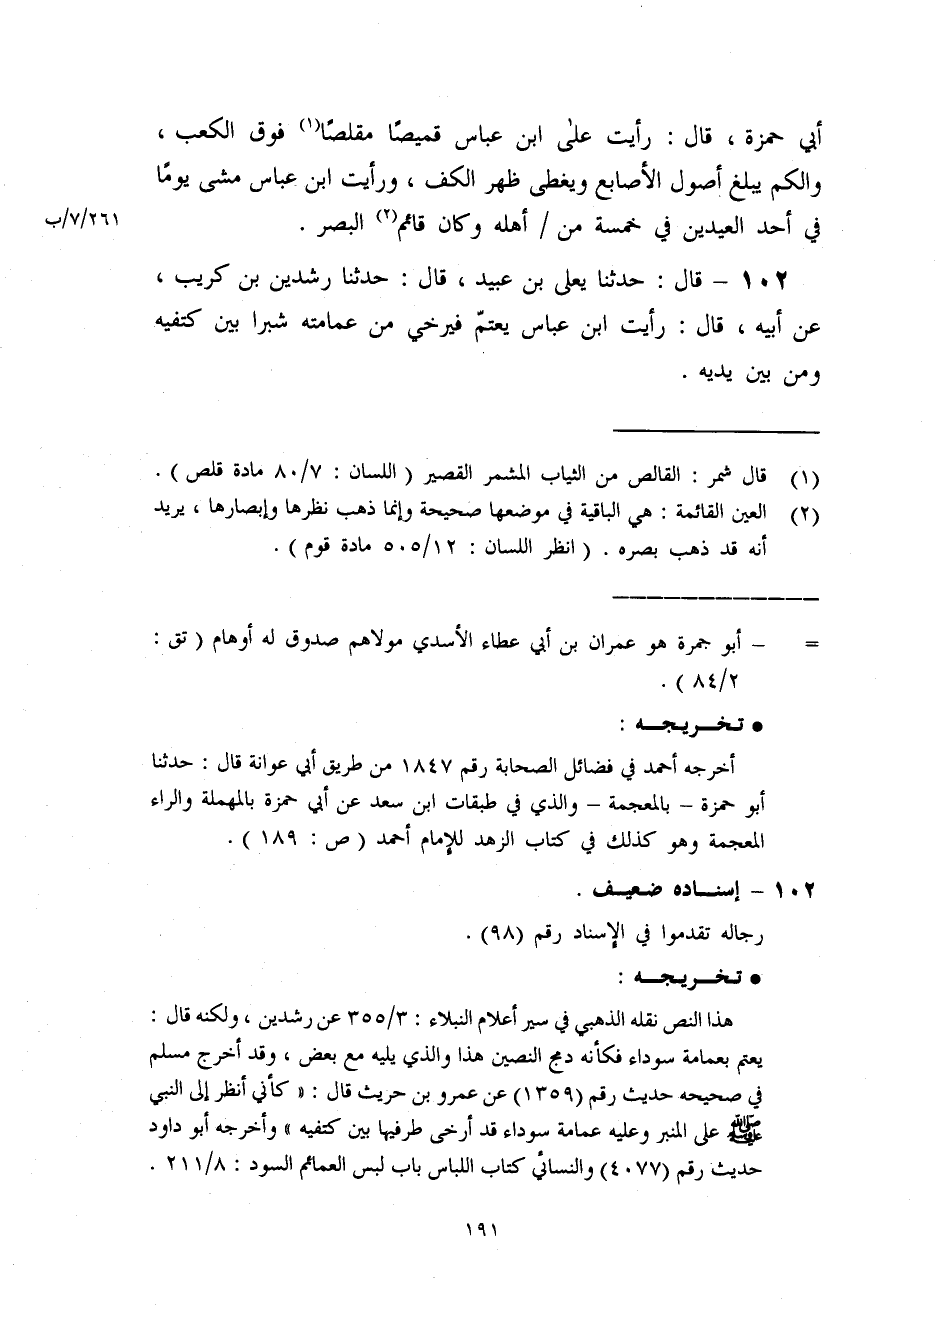 أبي حمزة ، قال : رأيت علىٰ ابن عباس قميصًا مقلصًا(١) فوق الكعب ،
والكم يبلغ أصول الأصابع ويغطى ظهر الكف ، ورأيت ابن عباس مشى يومًا
في أحد العيدين في خمسة من / أهله وكان قائم(٢) البصر .
٧/٢٦١/ب
١٠٢ – قال : حدثنا يعلى بن عبيد ، قال : حدثنا رشدين بن كريب ،
عن أبيه ، قال : رأيت ابن عباس يعتمّ فيرخي من عمامته شبرا بين كتفيه
ومن بين يديه .
(١) قال شمر : القالص من الثياب المشمر القصير ( اللسان : ٨٠/٧ مادة قلص ) .
(٢) العين القائمة : هي الباقية في موضعها صحيحة وإنما ذهب نظرها وإبصارها ، يريد
أنه قد ذهب بصره . ( انظر اللسان : ٥٠٥/١٢ مادة قوم ) .
= – أبو جمرة هو عمران بن أبي عطاء الأسدي مولاهم صدوق له أوهام ( تق :
٨٤/٢ ) .
• تخـــريجـــه :
أخرجه أحمد في فضائل الصحابة رقم ١٨٤٧ من طريق أبي عوانة قال : حدثنا
أبو حمزة – بالمعجمة – والذي في طبقات ابن سعد عن أبي حمزة بالمهملة والراء
المعجمة وهو كذلك في كتاب الزهد للإمام أحمد ( ص : ١٨٩ ) .
١٠٢ – إسنـــاده ضـعيــف .
رجاله تقدموا في الإسناد رقم (٩٨) .
• تخـــريجـــه :
هذا النص نقله الذهبي في سير أعلام النبلاء : ٣٥٥/٣ عن رشدين ، ولكنه قال :
يعتم بعمامة سوداء فكأنه دمج النصين هذا والذي يليه مع بعض ، وقد أخرج مسلم
في صحيحه حديث رقم (١٣٥٩) عن عمرو بن حريث قال : « كأني أنظر إلى النبي
ﷺ على المنبر وعليه عمامة سوداء قد أرخى طرفيها بين كتفيه » وأخرجه أبو داود
حديث رقم (٤٠٧٧) والنسائي كتاب اللباس باب لبس العمائم السود : ٢١١/٨ .
١٩١